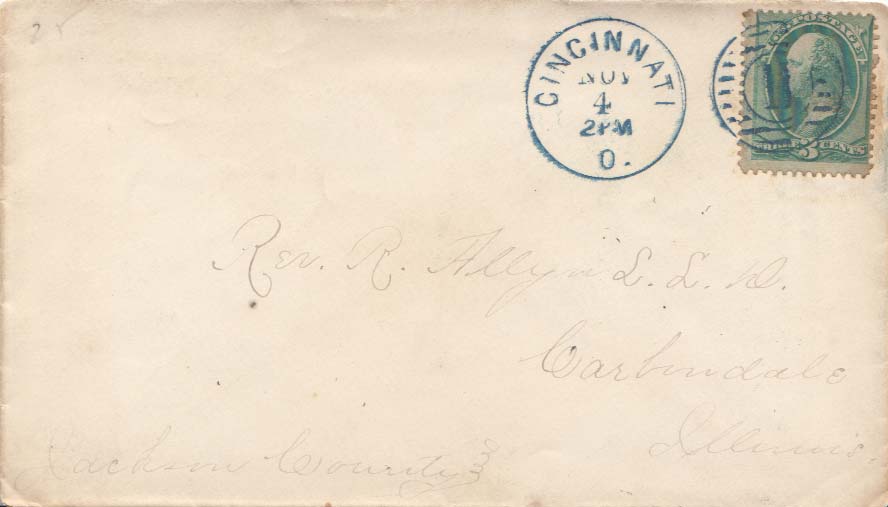 25
CINCINNATI
NOV
4
2PM
O.
U.S. POSTAGE
THREE 3 CENTS
Rev. R. Allyn L. L. D.
Carbondale
Illinois.
Jackson County